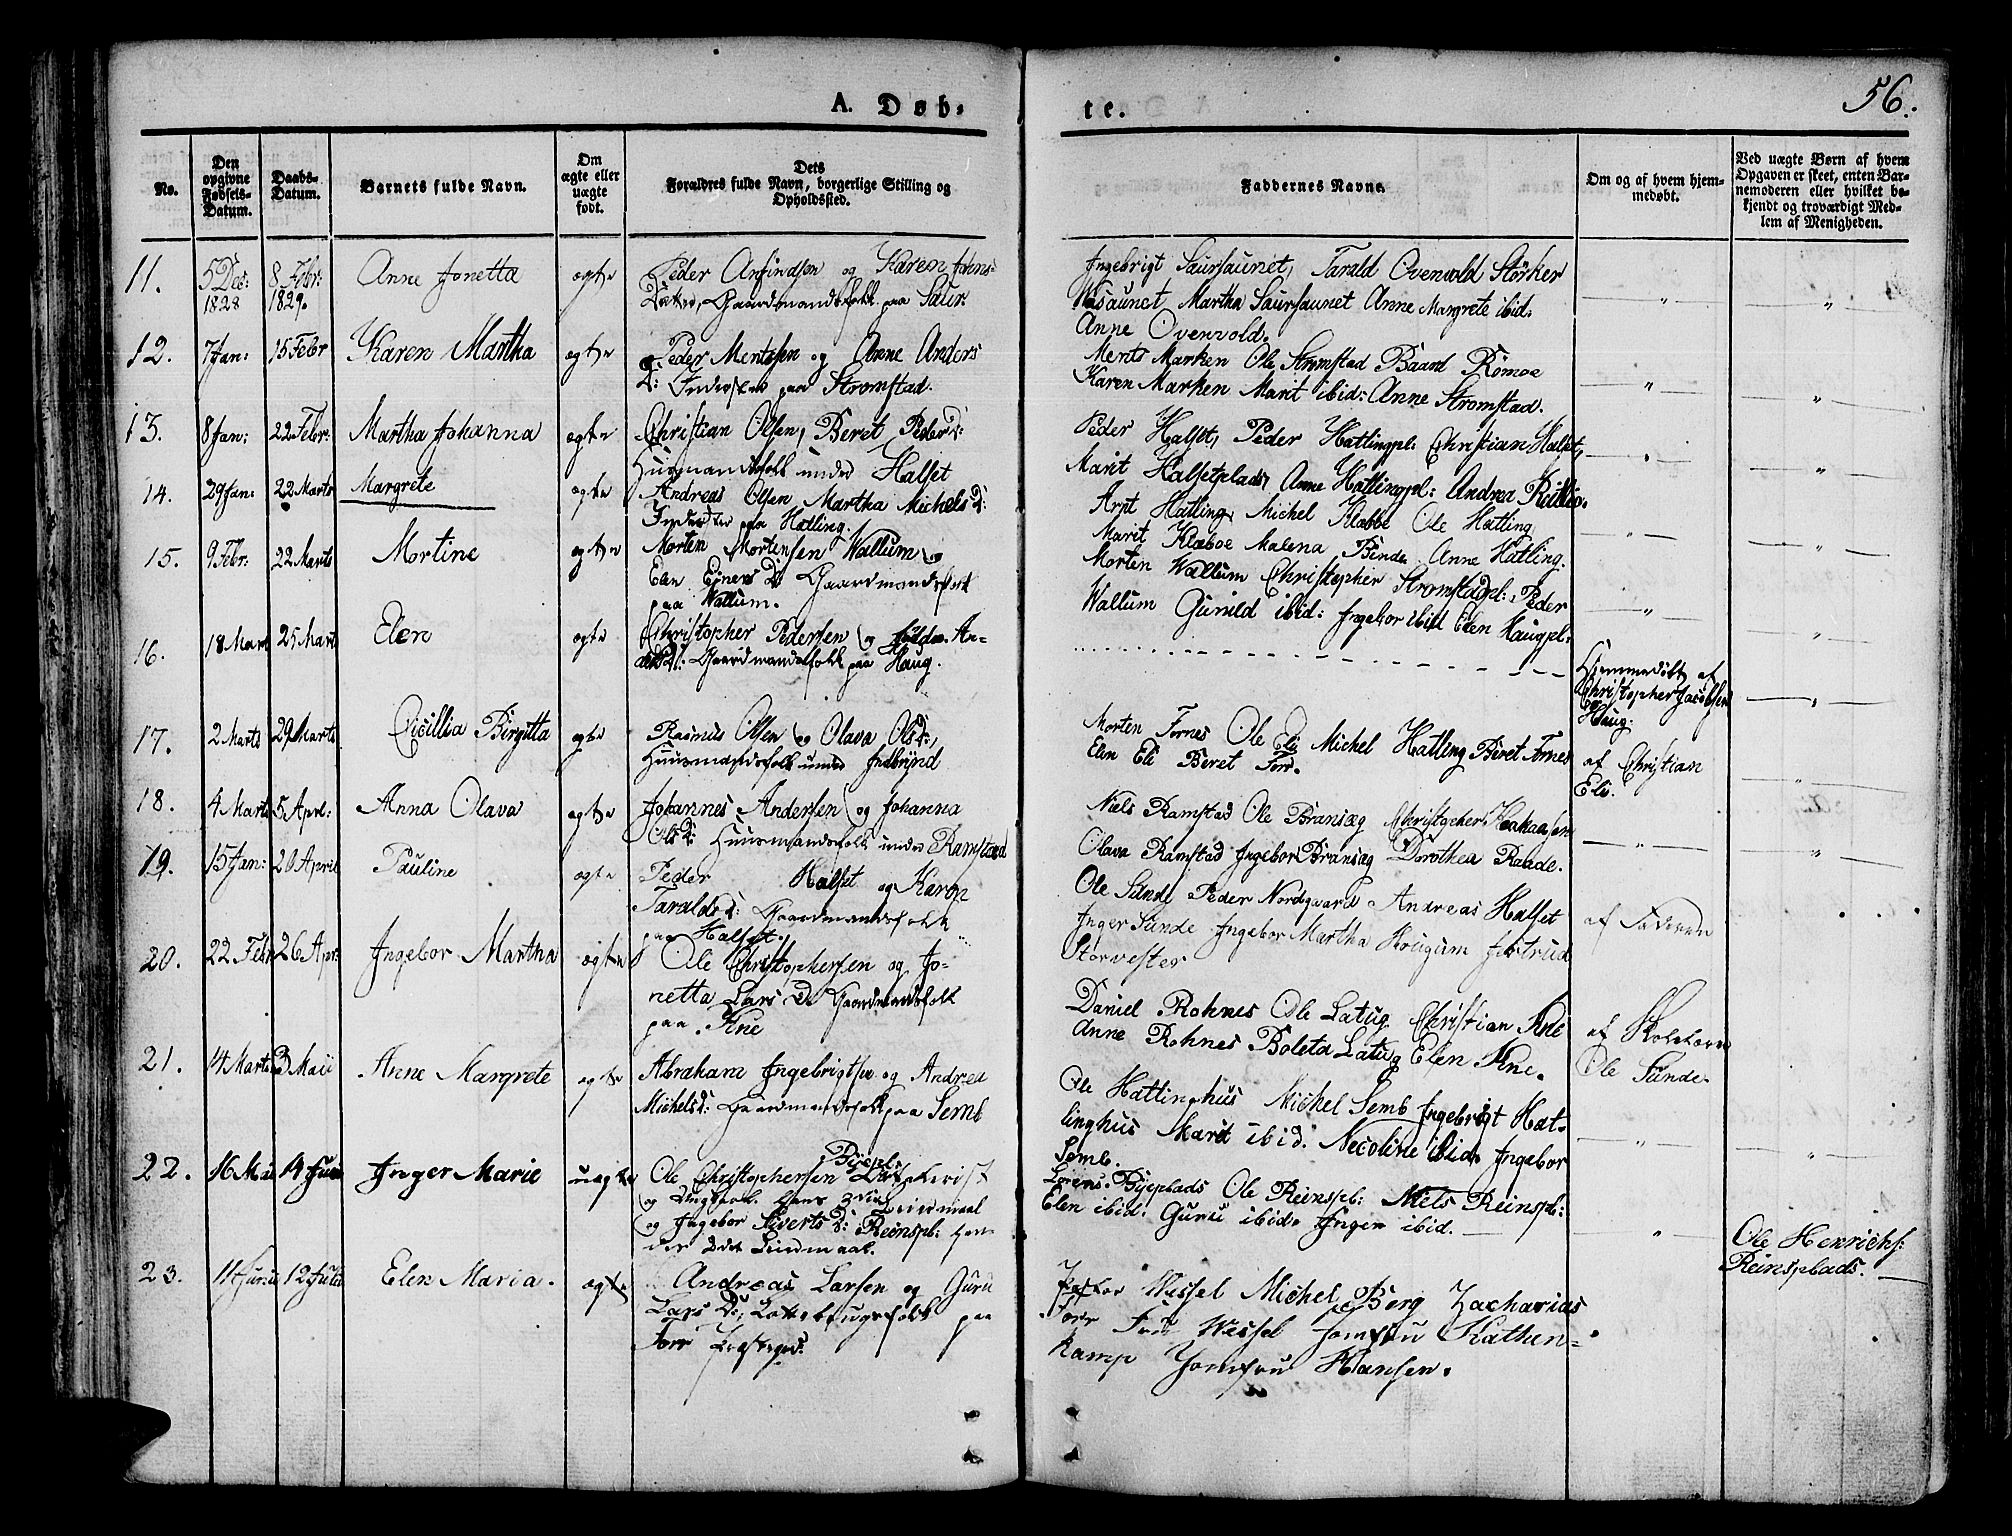 56.
A. Døb-
te.
No.
Den opgivne Fødsels-Datum.
Daabs-Datum.
Barnets fulde Navn.
Om ægte eller uægte født.
Dets Forældres fulde Navn, borgerlige Stilling og Opholdssted.
Faddernes Navne.
Om og af hvem hjem-
medøbt.
Ved uægte Børn af hvem
Opgaven er skeet, enten Bar-
nemoderen eller hvilket be-
kjendt og troværdigt Med-
lem af Menigheden.
11. 5 Dec: 1828 8 Febr: 1829. Anne Jonetta ægte
Peder Arfindsen og Karen Johns
Datter, Gaardmandsfolk paa Saur.
Ingebrigt Saursaunet, Tarald Ovenvold Størker
Martha Saursaunet Anne Margrete ibid:
Anne Ovenvold.
12. 7 Jan: 15 Febr Karen Martha ægte
Peder Mentzsen og Anne Anders
D: Inderster paa Strømstad.
Ments Marken Ole Strømstad Baard Rømoe
Karen Marken Marit ibid: Anne Strømstad.
13. 8 Jan: 22 Febr: Martha Johanna ægte
Christian Olsen, Beret Peders D:
Huusmandsfolk under Halset
Peder Halset, Peder Hatlingpl: Christian Halset,
Marit Halsetplads, Anne Hatlingpl: Andrea
14. 29 Jan: 22 Marts Margrete ægte
Andreas Olsen Martha Michels D:
Inderster paa Hatling.
Arnt Hatling, Michel Klæbbe Ole Hatling
Marit Klæboe Malena Binde Anne Hatling.
15. 9 Febr: 22 Marts Mortine ægte
Morten Mortensen Wallum og
Elen Einers D: Gaardmandsfolk
paa Wallum.
Morten Wallum Christopher Strømstadpl: Peder
Wallum Gunild ibid: Ingebor ibid Elen Haugpl:
16. 18 Mart 25 Mart Elen ægte
Christopher Pedersen og An-
D: Gaardmandsfolk paa Haug.
Hjemmedøbt af
Christopher Jacobsen
Haug:
17. 2 Marts 29 Marts Cicillia Birgitta ægte
Rasmus Olsen og Olava Ols D:,
Huusmandsfolk under Indbrynd
Morten Fornes Ole Eli Michel Hatling Beret Fornes
Elen Eli Beret For.
af Christian
Eli.
18. 4 Marts 5 Apr: Anna Olava ægte
Johannes Andersen og Johanna
Ols D: Huusmandsfolk under Ramstad
Niels Ramstad Ole Bransæg Christopher Haakaasen
Olava Ramstad Ingebor Bransæg Dorothea Raade.
19. 15 Jan: 20 April Pauline ægte
Peder Halset og Karen
Taralds D: Gaardmandsfolk
paa Halset.
Ole Sunde Peder Nordsgaard Andreas Halset
Inger Sunde Ingebor Martha Hougum Jertrud
Storvester
af Faderen
20. 22 Febr 26 Apr: Ingebor Martha ægte
Ole Christophersen og Jo-
netta Lars D: Gaardmandsfolk
paa Kne
Daniel Rohnes Ole Latug Christian Kne
Anne Rohnes Boleta Latug Elen Kne.
af Skolelærer
Ole Sunde.
21. 14 Marts 3 Maii Anne Margrete ægte
Abraham Ingebrigtsen og Andrea
Michels D: Gaardmandsfolk paa Semb
Ole Hattinghus Michel Semb Ingebrigt Hat-
linghus Marit ibid. Nicoline ibid. Ingebor
Semb.
22. 16 Mai 14 Juni Inger Marie uægte
Ole Christophersen Byepl:
og Ungkarl Hans 3die Leiermaal
og Ingebor Siverts D: Reinspl: hen-
des 2det Leiermaal.
Lorens Byeplads Ole Reinspl: Niels Reinspl:
Elen ibid. Guru ibid. Inger ibid.
Ole Henrichs:
Reinsplads.
23. 11 Juni 12 Juli Elen Maria. ægte
Andreas Larsen og Guru
Lars D: folk paa
Præstegd:
Wessel Michel Berg Zacharias
Frue Wessel Jomfru Kathen-
kamp Jomfru Hansen.